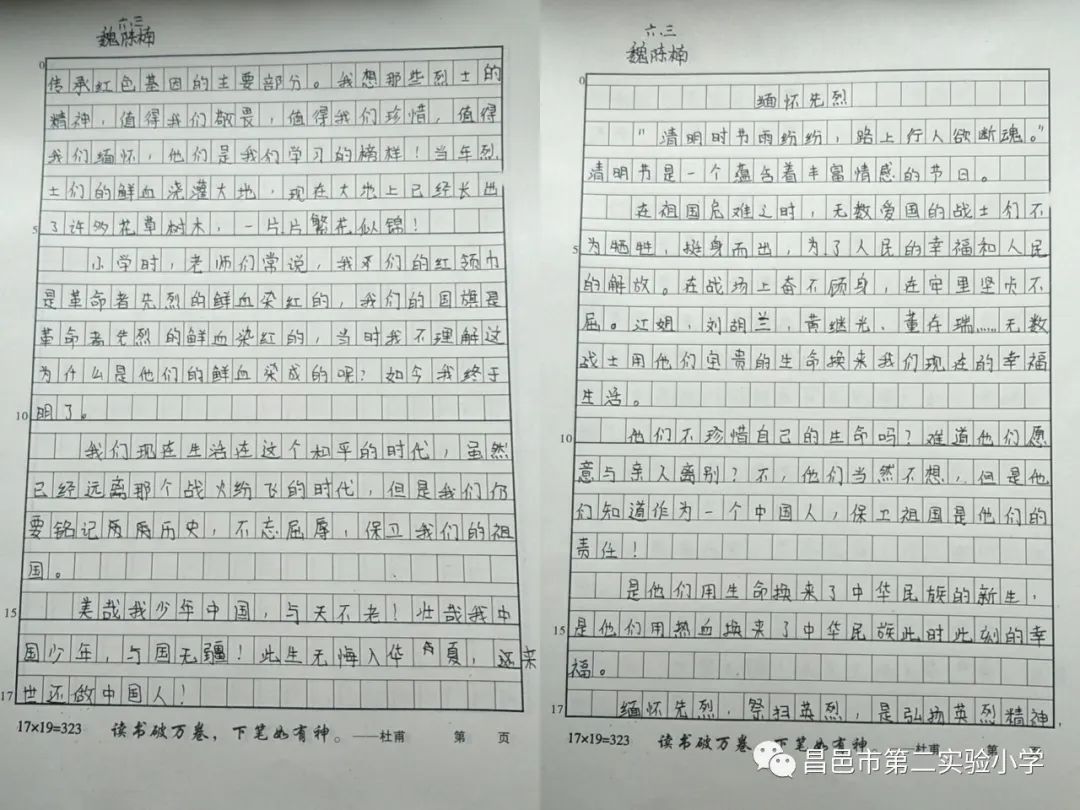 六.三
魏陈楠
0
传承红色基因的主要部分。我想那些烈士的
精神,值得我们敬畏,值得我们珍惜,值得
我们缅怀,他们是我们学习的榜样!当年烈
士们的鲜血浇灌大地,现在大地上已经长出
5 了许多花草树木,一片片繁花似锦!
小学时,老师们常说,我们的红领巾
是革命者先烈的鲜血染红的,我们的国旗是
革命者先烈的鲜血染红的,当时我不理解这
为什么是他们的鲜血染成的呢?如今我终于
10 明了。
我们现在生活在这个和平的时代,虽然
已经远离那个战火纷飞的时代,但是我们仍
要铭记历史,不忘屈辱,保卫我们的祖
国。
15 美哉我少年中国,与天不老!壮哉我中
国少年,与国无疆!此生无悔入华夏,来
17 世还做中国人!
17×19=323 读书破万卷,下笔如有神。——杜甫 第 页
六.三
魏陈楠
0
缅怀先烈
"清明时节雨纷纷,路上行人欲断魂。"
清明节是一个蕴含着丰富情感的节日。
在祖国危难之时,无数爱国的战士们不
5 为牺牲,挺身而出,为了人民的幸福和人民
的解放。在战场上奋不顾身,在牢里坚贞不
屈。江姐,刘胡兰,黄继光、董存瑞……无数
战士用他们宝贵的生命换来我们现在的幸福
生活。
10 他们不珍惜自己的生命吗?难道他们愿
意与亲人离别?不,他们当然不想,但是他
们知道作为一个中国人,保卫祖国是他们的
责任!
是他们用生命换来了中华民族的新生,
15 是他们用热血换来了中华民族此时此刻的幸
福。
17 缅怀先烈,祭扫英烈,是弘扬英烈精神,
17×19=323 读书破万卷,下笔如有神。——杜甫 第 页
昌邑市第二实验小学